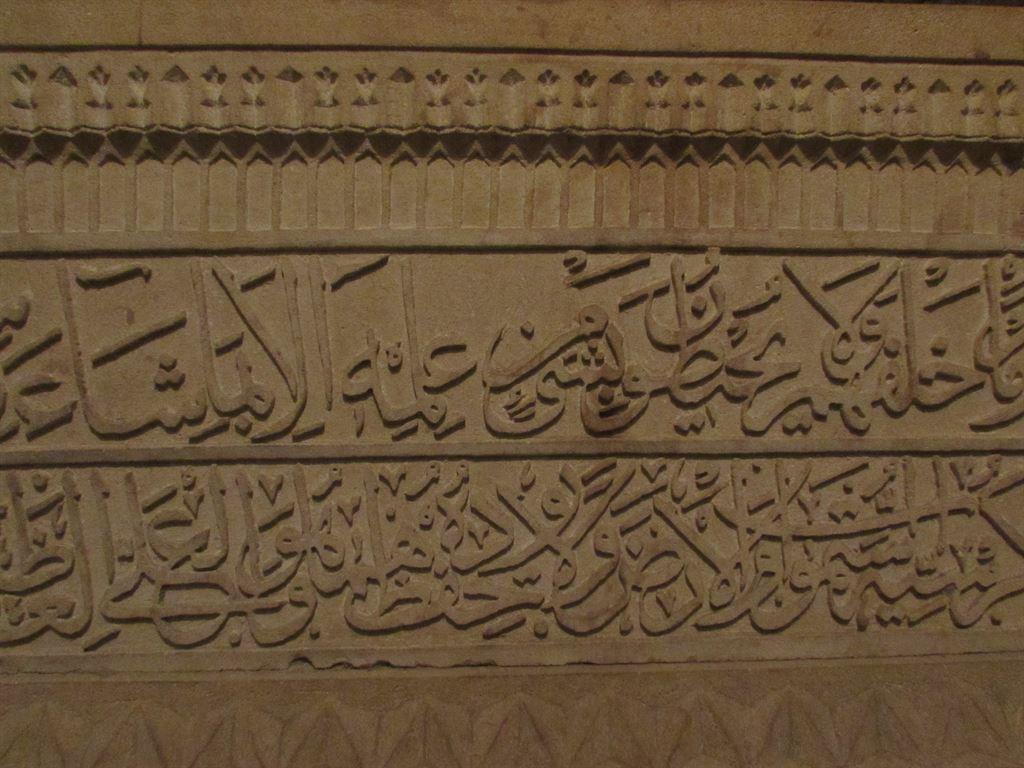 وما خلفهم ولا يحيطون بشئ من علمه الا بما شاء
كرسيه السموات والارض ولا يؤده حفظهما وهو العلي العظيم